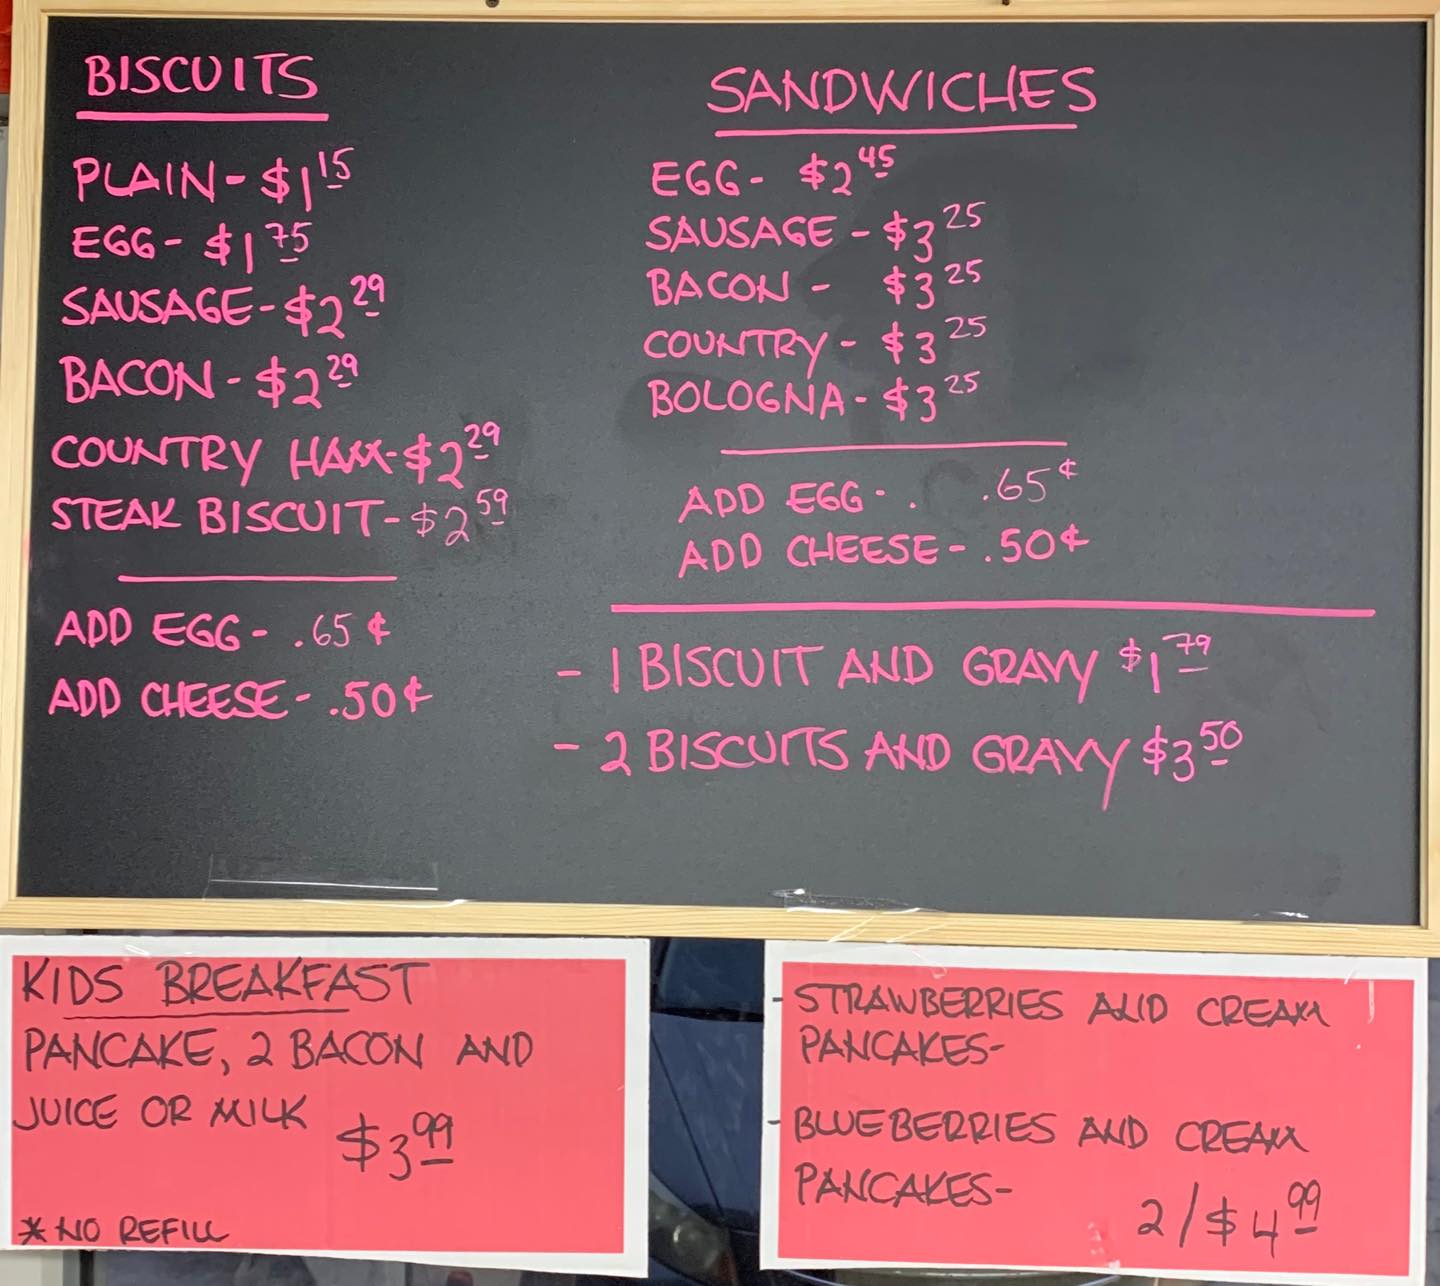 BISCUITS
PLAIN - $1 15
EGG - $1 75
SAUSAGE - $2 29
BACON - $2 29
COUNTRY HAM - $2 29
STEAK BISCUIT - $2 59
ADD EGG - .65¢
ADD CHEESE - .50¢
SANDWICHES
EGG - $2 45
SAUSAGE - $3 25
BACON - $3 25
COUNTRY - $3 25
BOLOGNA - $3 25
ADD EGG - . .65¢
ADD CHEESE - .50¢
- 1 BISCUIT AND GRAVY $1 79
- 2 BISCUITS AND GRAVY $3 50
KIDS BREAKFAST
PANCAKE, 2 BACON AND
JUICE OR MILK $3 99
* NO REFILL
- STRAWBERRIES AND CREAM
PANCAKES-
- BLUEBERRIES AND CREAM
PANCAKES-
2/$4 99